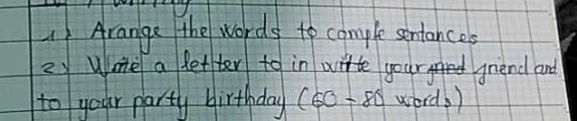 1) Arange the words to comple sentances
2) Write a letter to in witte your friend and
to your party birthday (60 - 80 words)